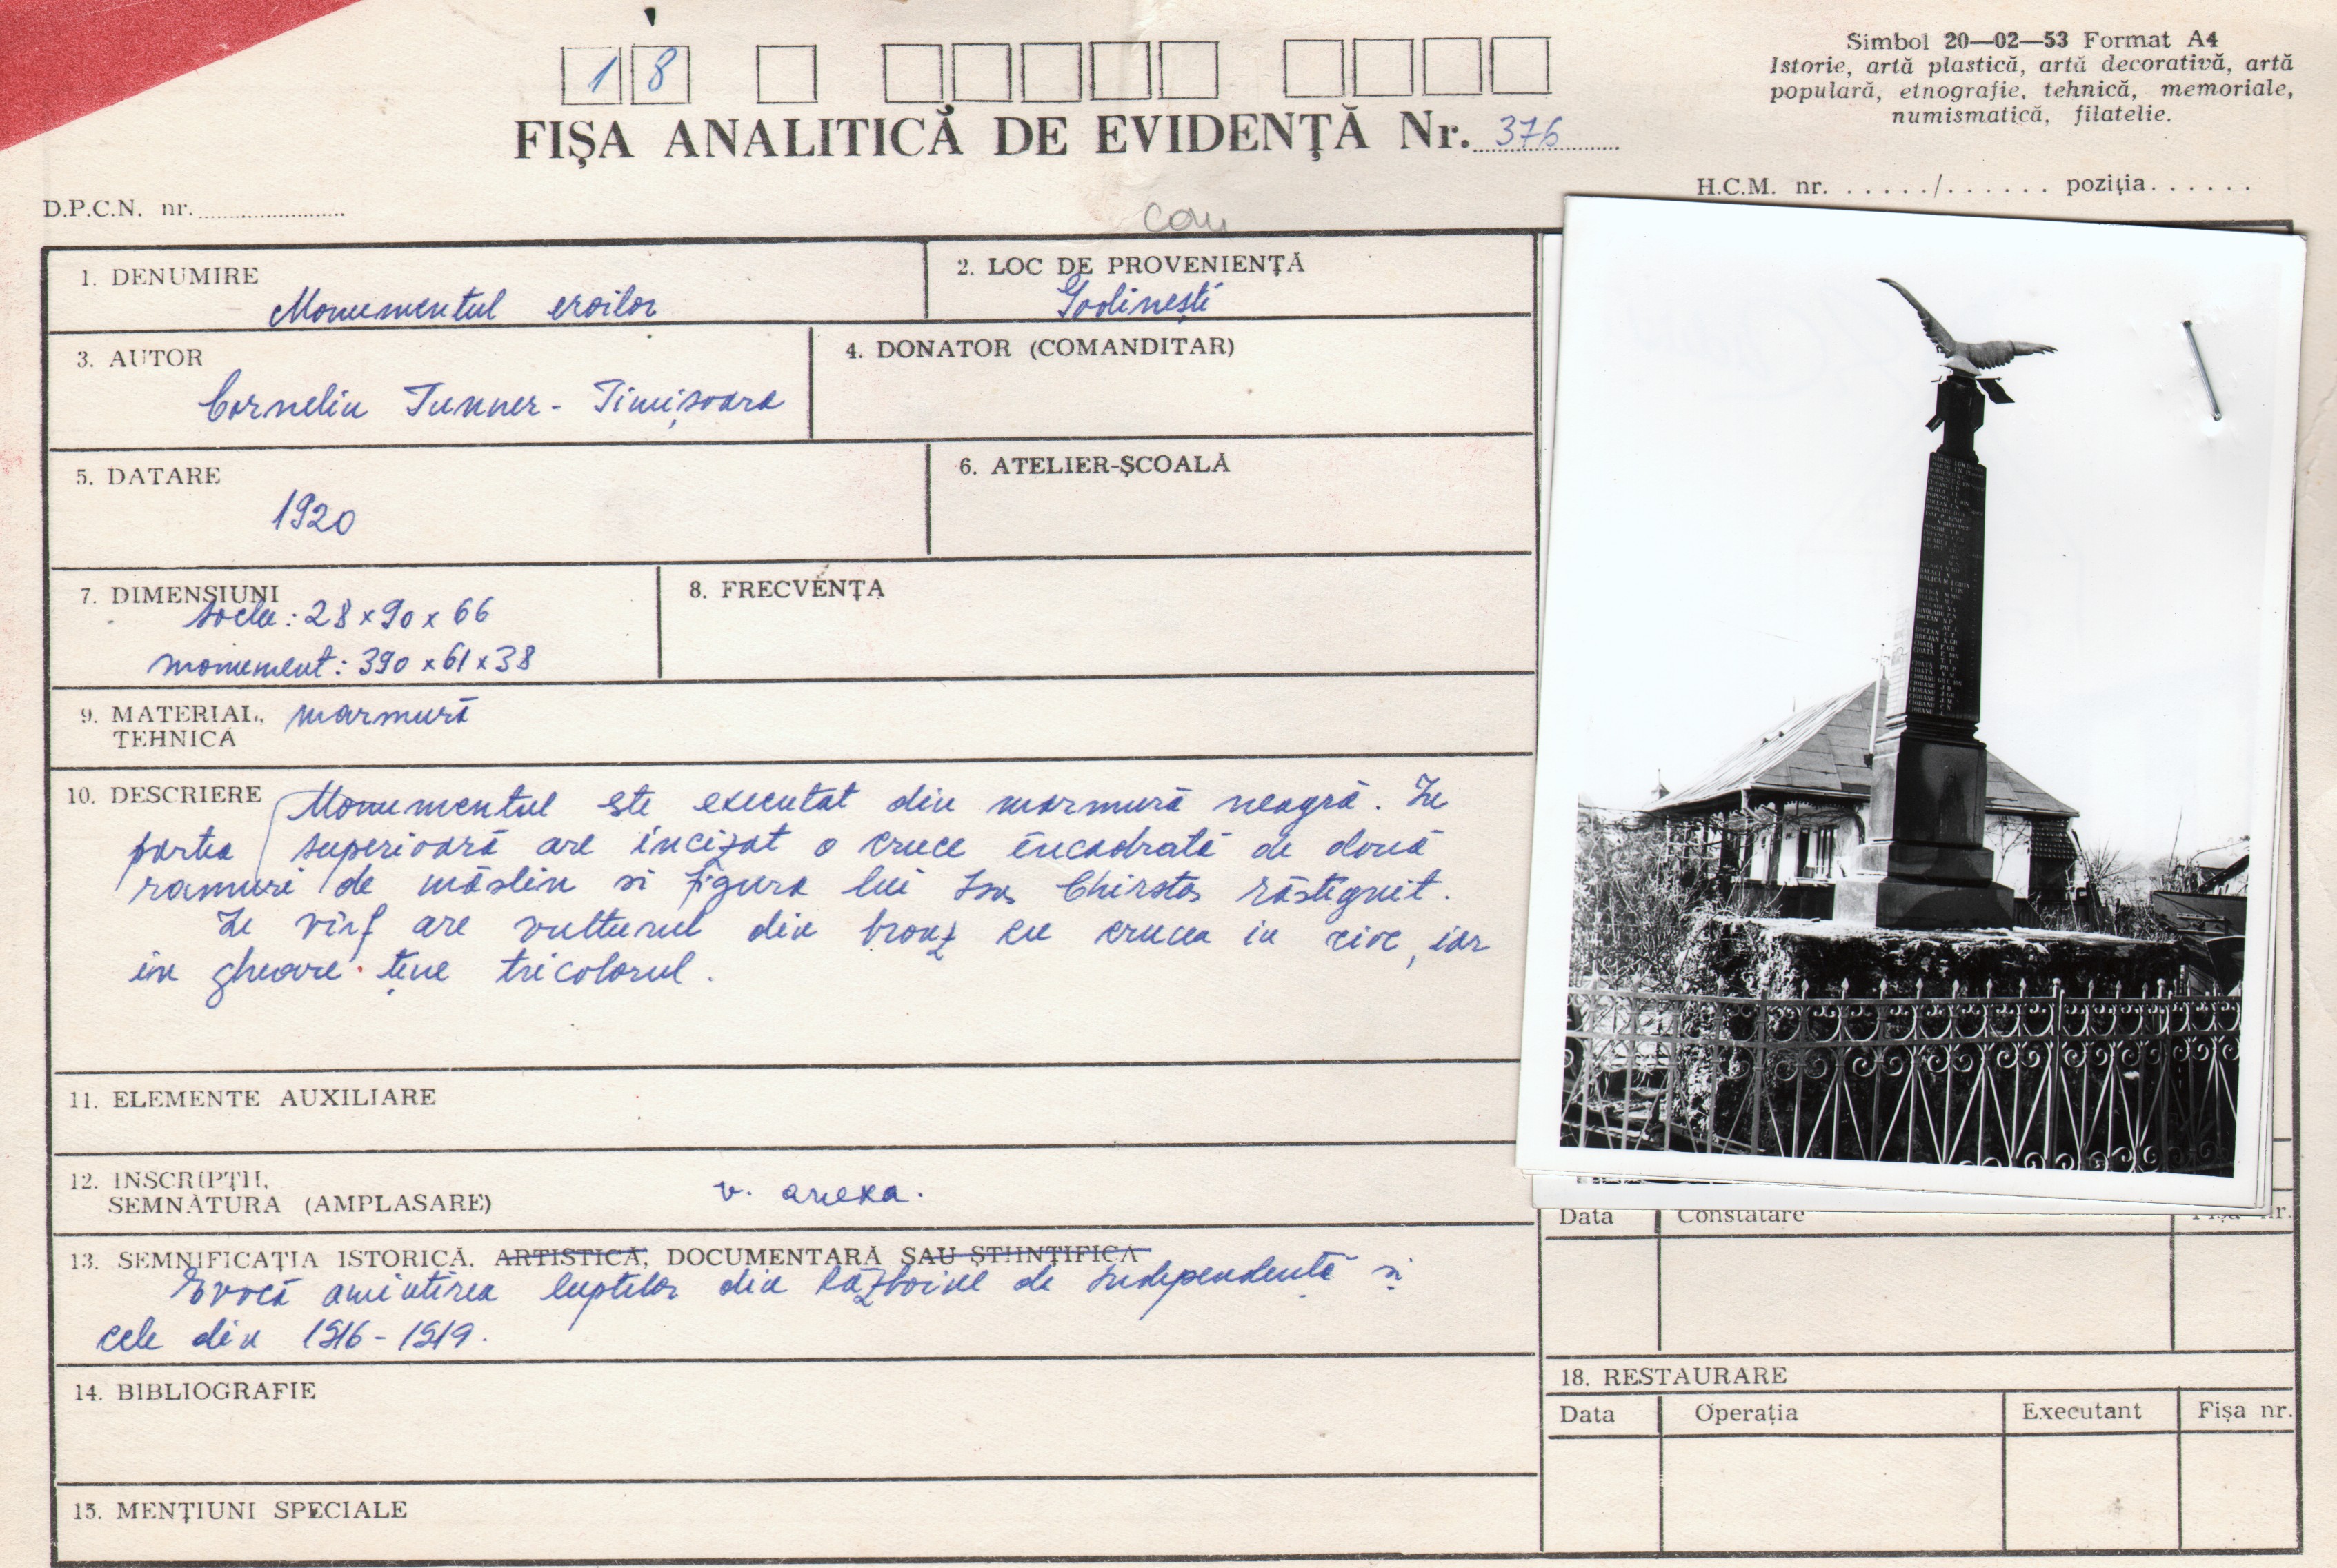 Simbol 20—02—53 Format A4
Istorie, artă plastică, artă decorativă, artă
populară, etnografie, tehnică, memoriale,
numismatică, filatelie.
18
FIȘA ANALITICĂ DE EVIDENȚĂ Nr. 376
H.C.M. nr. ...../...... poziția......
D.P.C.N. nr.
1. DENUMIRE
Monumentul eroilor
2. LOC DE PROVENIENȚĂ
Godinești
3. AUTOR
Corneliu Tunner - Timișoara
4. DONATOR (COMANDITAR)
5. DATARE
1920
6. ATELIER-ȘCOALĂ
7. DIMENSIUNI
soclu: 28 x 90 x 66
monument: 390 x 61 x 38
8. FRECVENȚA
9. MATERIAL, marmură
TEHNICĂ
10. DESCRIERE Monumentul este executat din marmură neagră. În
partea superioară are incizat o cruce încadrată de două
ramuri de măslin si figura lui Isus Chirstos răstignit.
În vîrf are vulturul din bronz cu crucea in cioc, iar
in gheare tine tricolorul.
11. ELEMENTE AUXILIARE
12. INSCRIPȚII,
SEMNĂTURA (AMPLASARE) v. anexa.
13. SEMNIFICAȚIA ISTORICĂ, ARTISTICĂ, DOCUMENTARĂ SAU ȘTIINȚIFICĂ
Evocă amintirea luptelor din Războiul de Independență și
cele din 1916-1919.
14. BIBLIOGRAFIE
15. MENȚIUNI SPECIALE
Data Constatare Fișa nr.
18. RESTAURARE
Data Operația Executant Fișa nr.